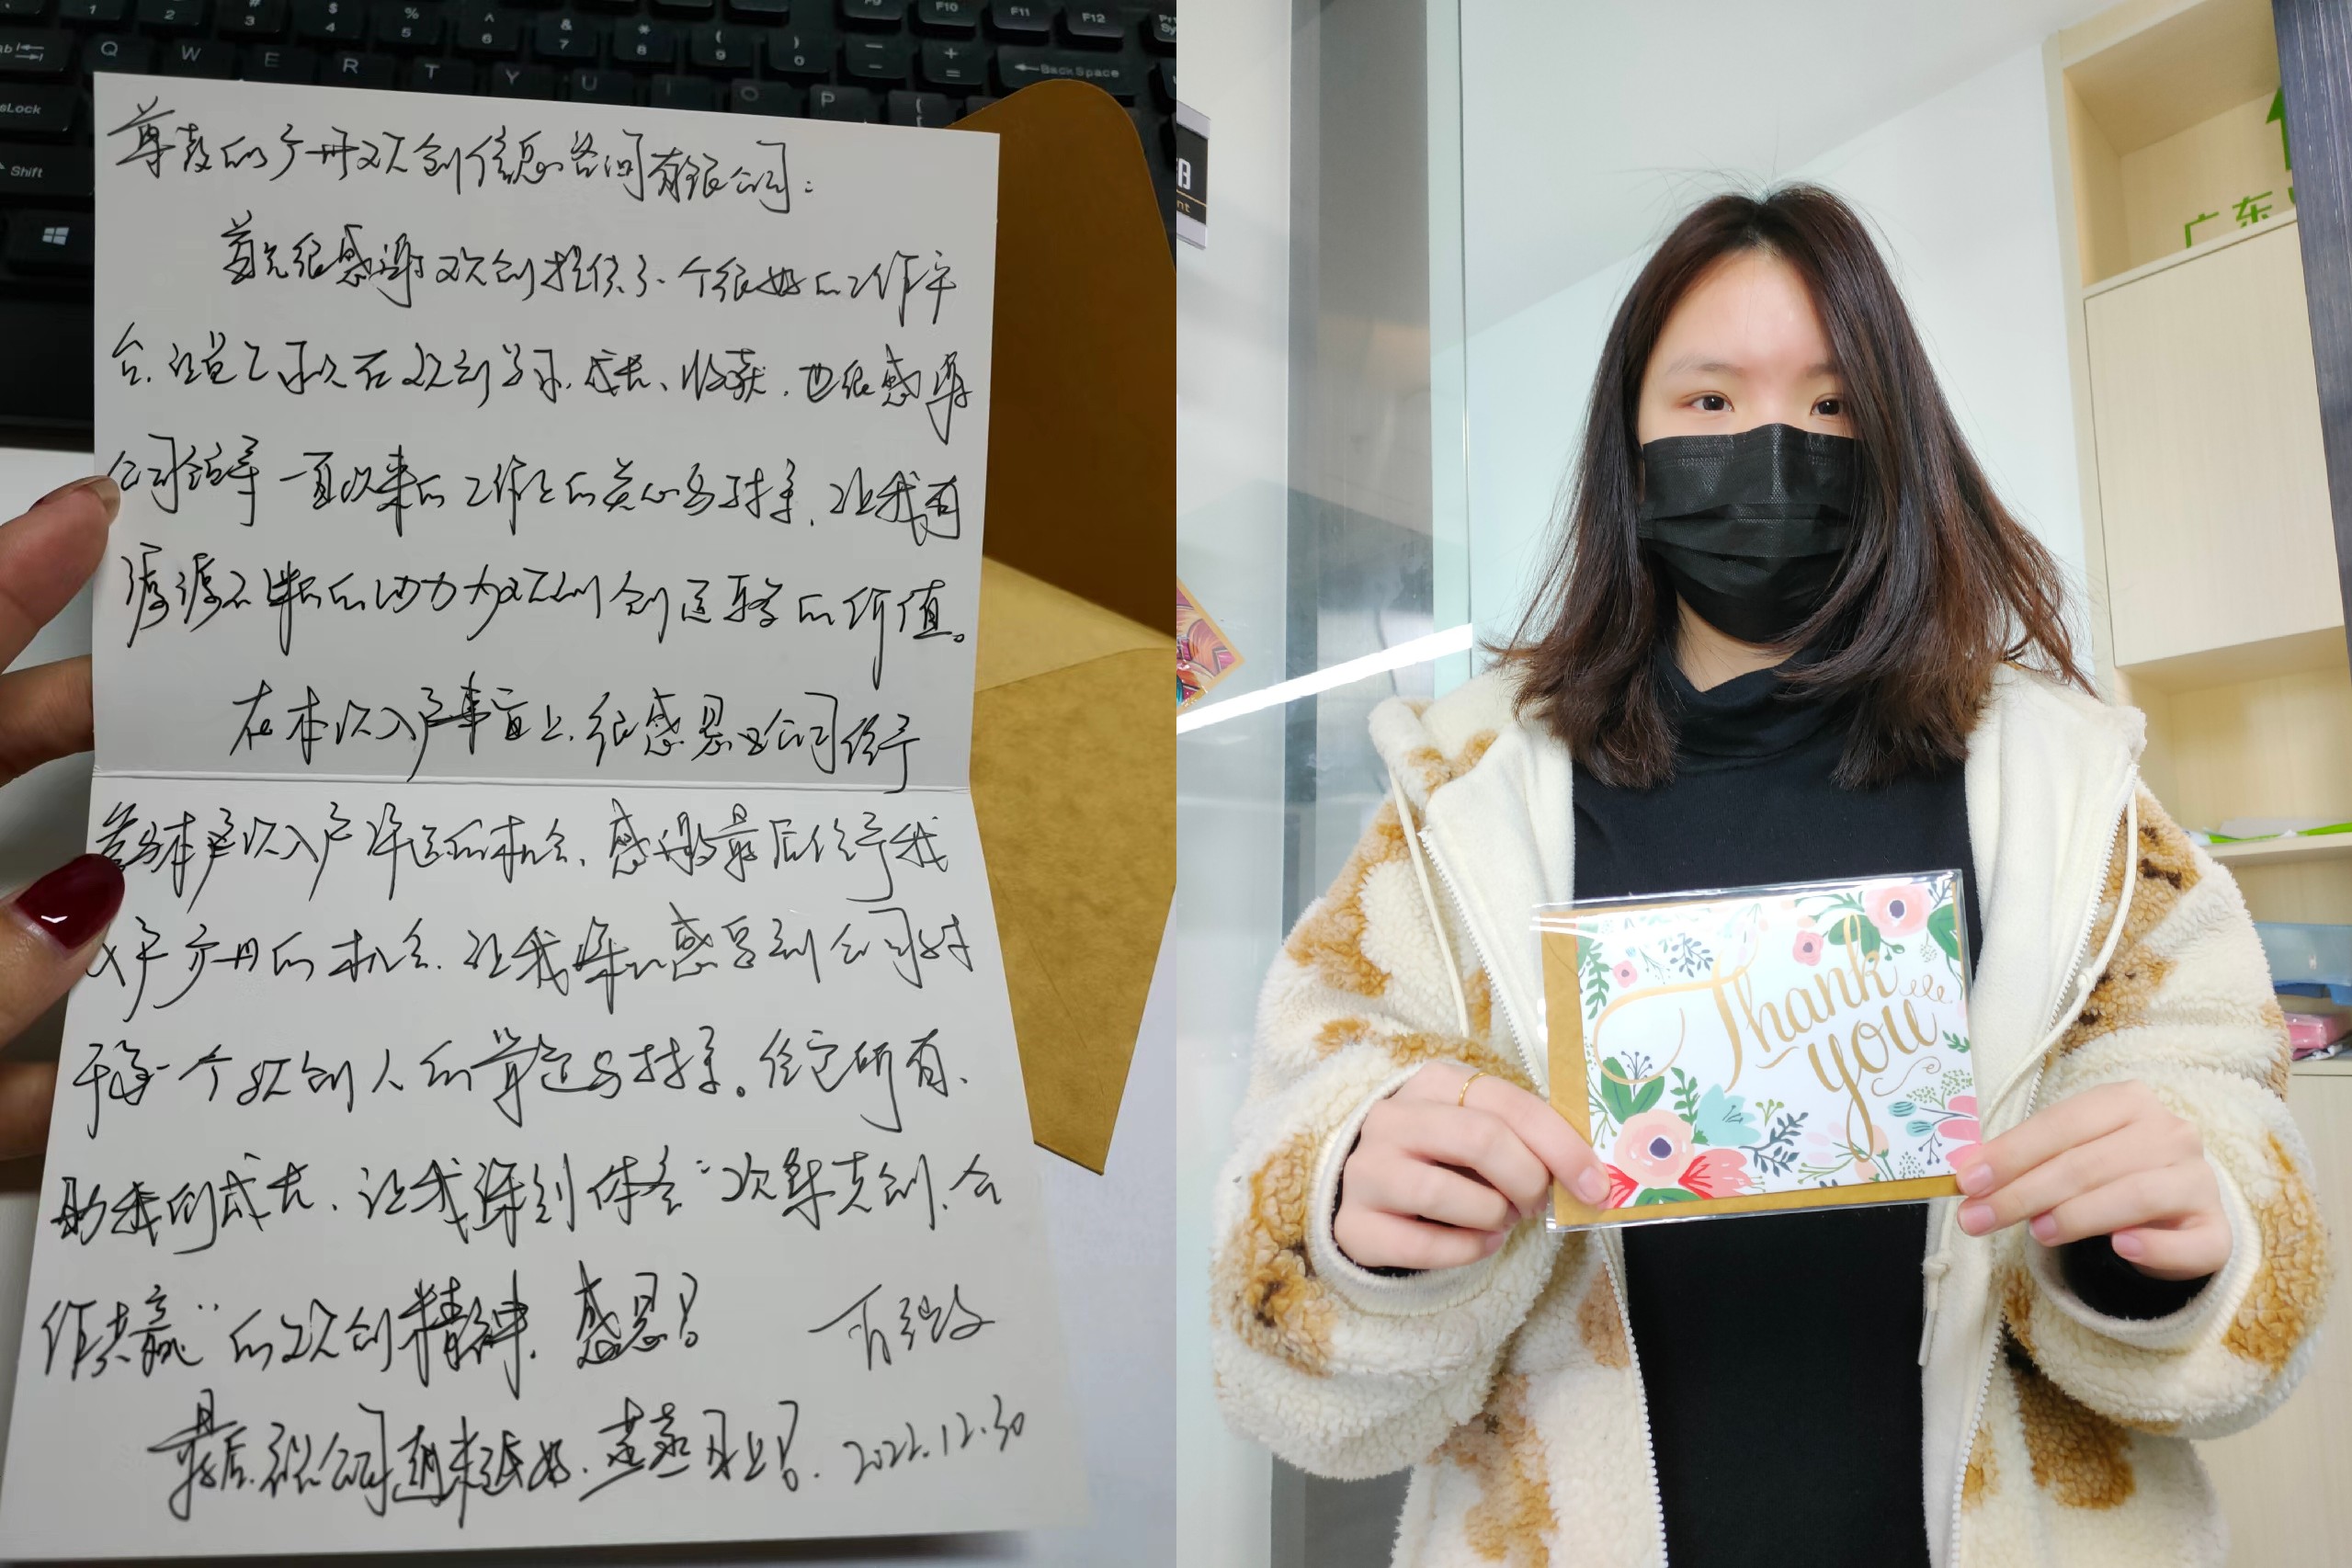 尊敬的广州欢创信息咨询有限公司:
首先很感谢欢创提供了一个很好的工作平
台,让自己可以在欢创学习、成长、收获,也很感恩
公司领导一直以来的工作上的关心与扶持,让我有
源源不断的动力为欢创创造更多的价值。
在本次入户事宜上,很感恩公司给予
首次入户评选的机会,感谢最后给予我
入户广州的机会,让我深深感恩到公司对
于每一个欢创人的肯定与扶持。给它所有、
助我们成长,让我深刻体会"欢乐先创,合
作共赢"的欢创精神,感恩!
最后,祝公司越来越好,蒸蒸日上! 2022.12.30
Thank
you
广东
Q W E R T Y U I O P
BackSpace
Shift
F10 F11 F12